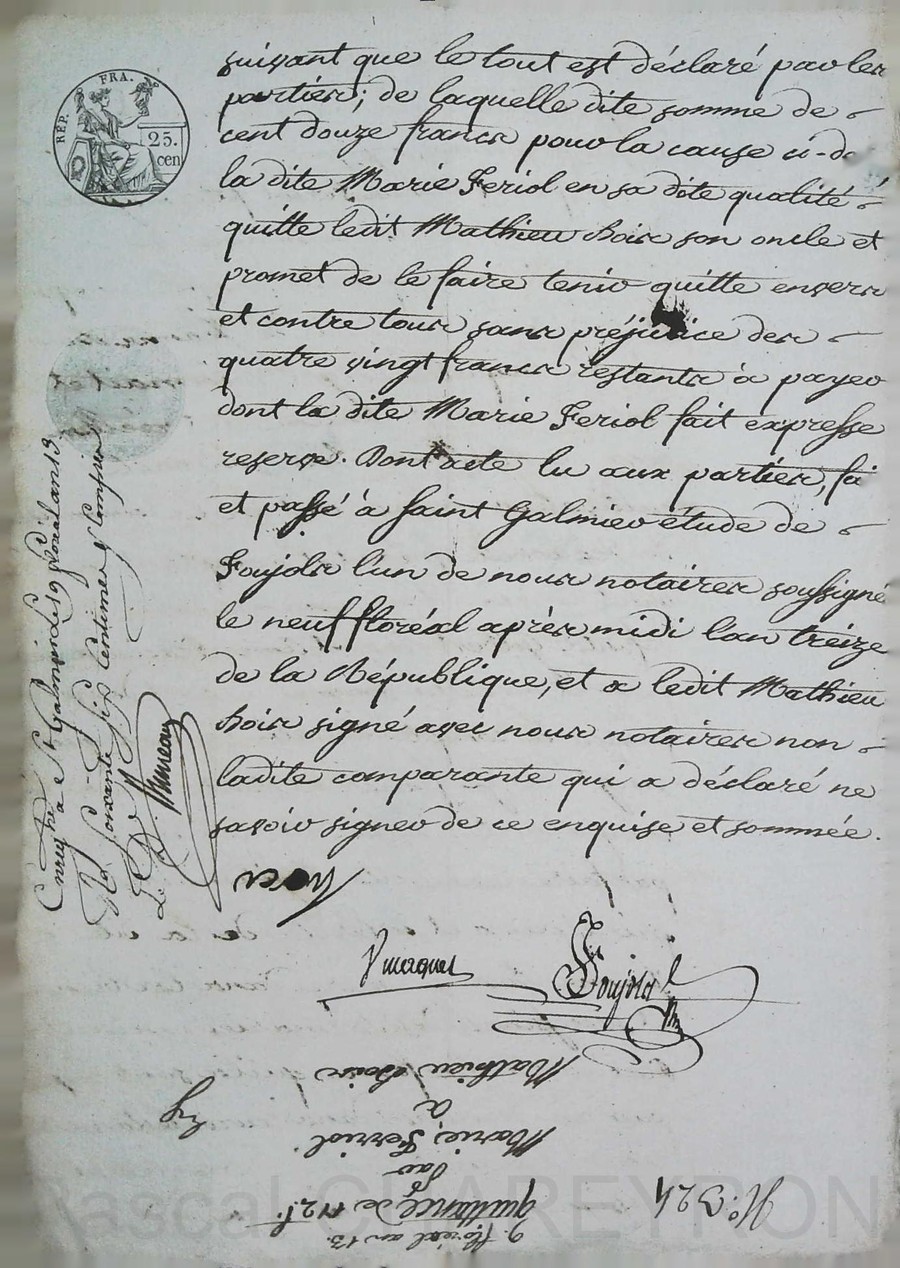 RÉP. FRA.
25.
cen
suivant que le tout est déclaré par les
parties; de laquelle dite somme de
cent douze francs pour la cause ci-de
la dite Marie Feriol en sa dite qualité
quitte ledit Mathieu Boix son oncle et
promet de le faire tenir quitte envers
et contre tous sans préjudice des
quatre vingt francs restants à payer
dont la dite Marie Feriol fait expresse
reserve. Dont acte lu aux parties, fai
et passé à Saint Galmier étude de
Foujols l'un de nous notaires soussigné
le neuf floréal après midi l'an treize
de la République, et a ledit Mathieu
Boix signé avec nous notaires non
ladite comparante qui a déclaré ne
savoir signer de ce enquise et sommée.
Enregtré a St Galmier le 19 floréal an 13
soixante six centimes y compris
Foujols
Mathieu Boix
a
Marie Ferriol
par
quittance de 112 f.
9. floréal an 13.
N.º 324
Pascal CHAREYRON